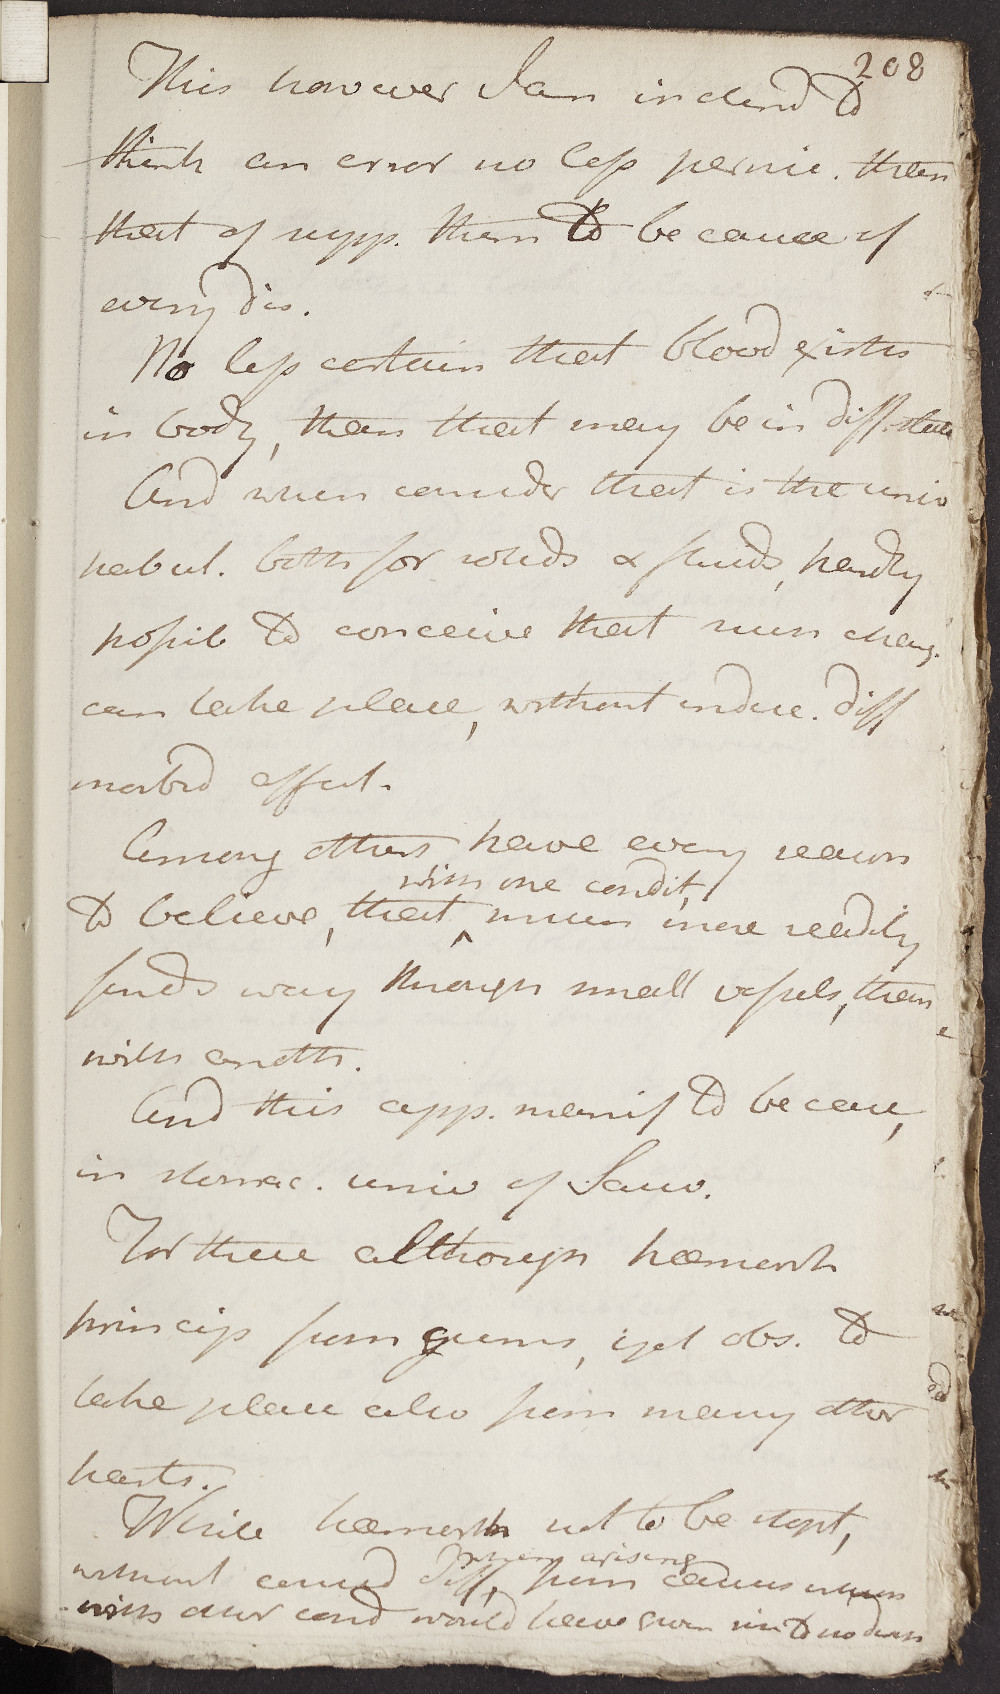 208
This however I am inclend to
think an error no less pernic. than
that of supp. them to be cause of
every dis.
No less certain that blood exists
in body, than that may be in diff. state
And when consider that is the univ
pabul. both for solids & fluids, hardly
possib to conceive that such chang.
can take place, without induc. diff
morbid effect.
Among others, have every reason
with one condit,
to believe, that ^ much more readily
finds way through small vessels, than
with anoth.
And this app. manif to be case,
in stomac. univ of Sauv.
For there although hæmorrh
princip from gums, yet obs. to
take place also from many other
parts.
While hæmorrh not to be stopt,
when arising
without consid diff, from causes which
with other cond would have given rise to no